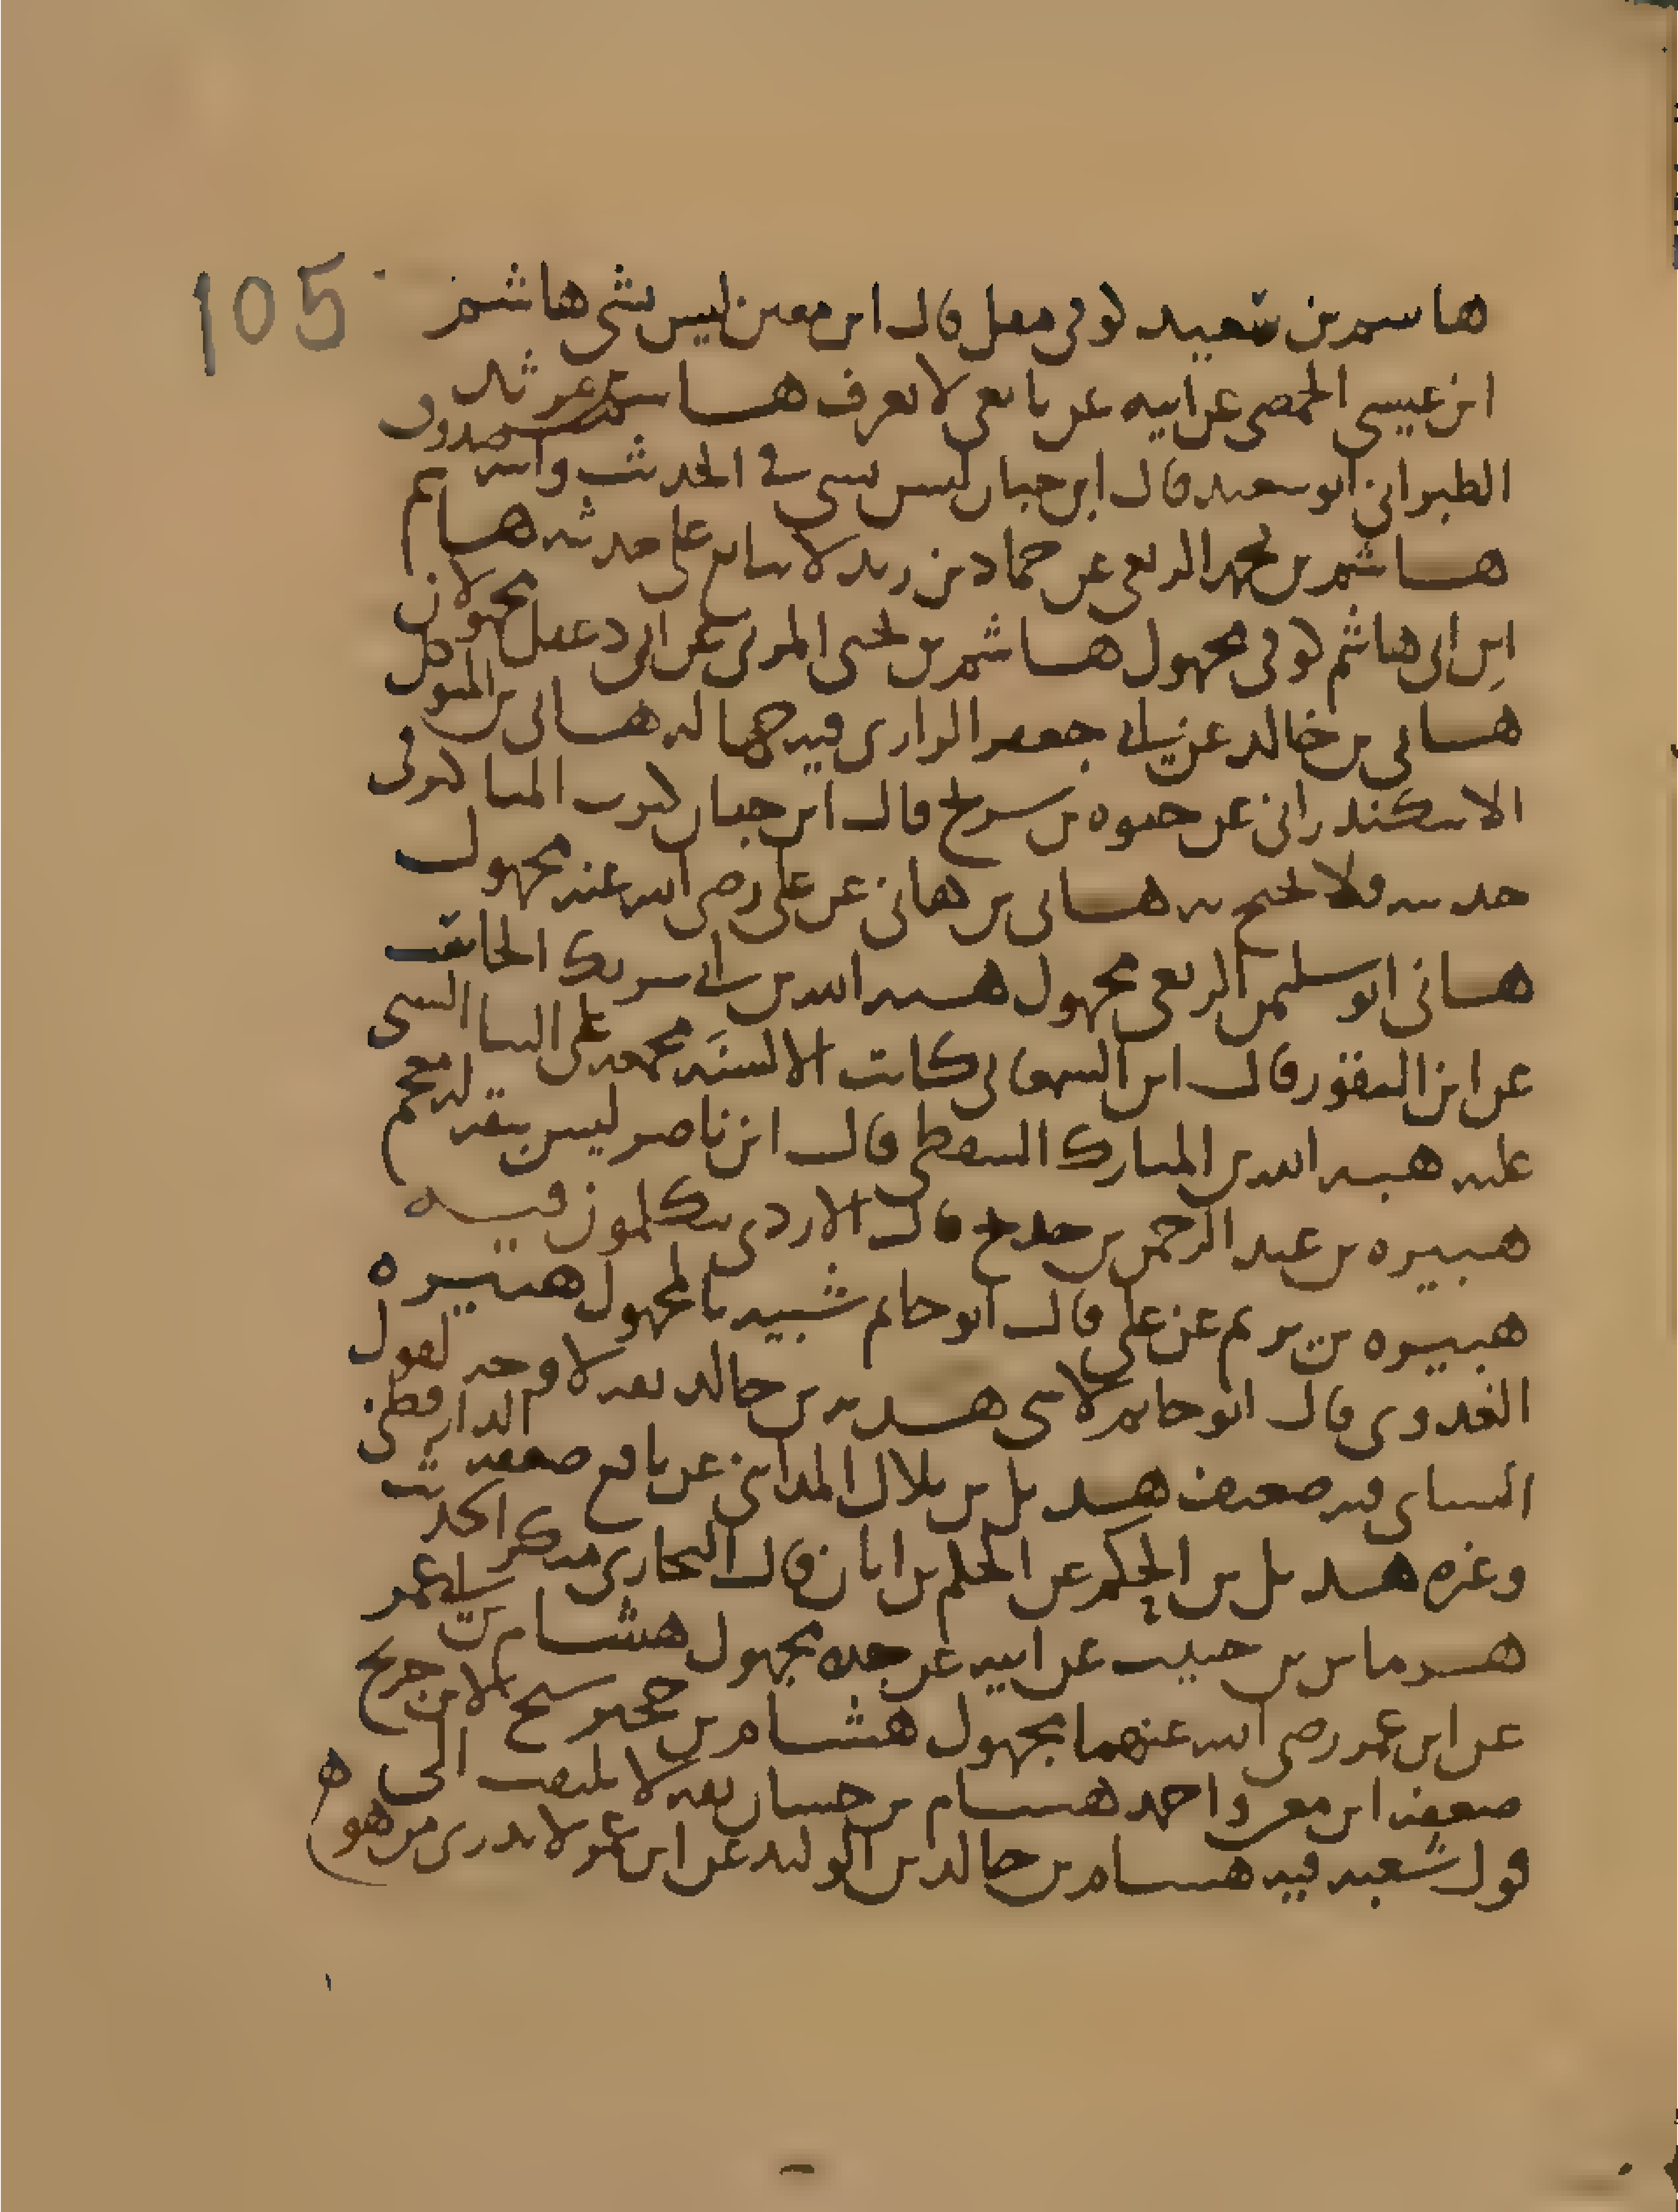 105
هاشم بن سعيد كوفي مقل قال ابن معين ليس بشي هاشم
ابن عيسى الحمصي عن ابيه عن تابعي لا يعرف هاشم بن مرثد
الطبراني ابو سعيد قال ابن حبان ليس بشي في الحديث
هاشم بن محمد الربعي عن حماد بن زيد لا يتابع على حديثه هاشم
ابن ابي هاشم كوفي مجهول هاشم بن يحيى المزني عن ابي دغفل مجهولان
هاني بن خالد عن ابي جعفر الرازي فيه جهالة هاني بن المتوكل
الاسكندراني عن حيوه بن شريح قال ابن حبان كثرت المناكير في
حديثه فلا يحتج به هاني بن هاني عن علي رضي الله عنه مجهول
هاني ابو سليمن الربعي مجهول هبة الله بن ابي شريك الحاسب
عن ابن النقور قال ابن السمعاني كانت الالسنه مجمعه على الثنا السي
عليه هبة الله بن المبارك السقطي قال ابن ناصر ليس بثقه له معجم
هبيره بن عبد الرحمن بن حديج قال الازدي يتكلمون فيه
هبيره بن يريم عن علي قال ابو حاتم شبيه بالمجهول هبيره
العدوي قال ابو حاتم لا شي هدبه بن خالد ثقه لا وجه لقول
النساي فيه ضعيف هديل بن بلال المدايني عن نافع ضعفه الدارقطني
وغيره هديل بن الحكم عن الحكم بن ابان قال البخاري منكر الحديث
هرماس بن حبيب عن ابيه عن جده مجهول هشام بن ابي عمر
عن ابن عمر رضي الله عنهما مجهول هشام بن حجير شيخ لابن جريج
ضعفه ابن معين واحمد هشام بن حسان ثقه لا يلتفت الى
قول شعبه فيه هشام بن خالد بن الوليد عن ابن عمر لا يدرى من هو